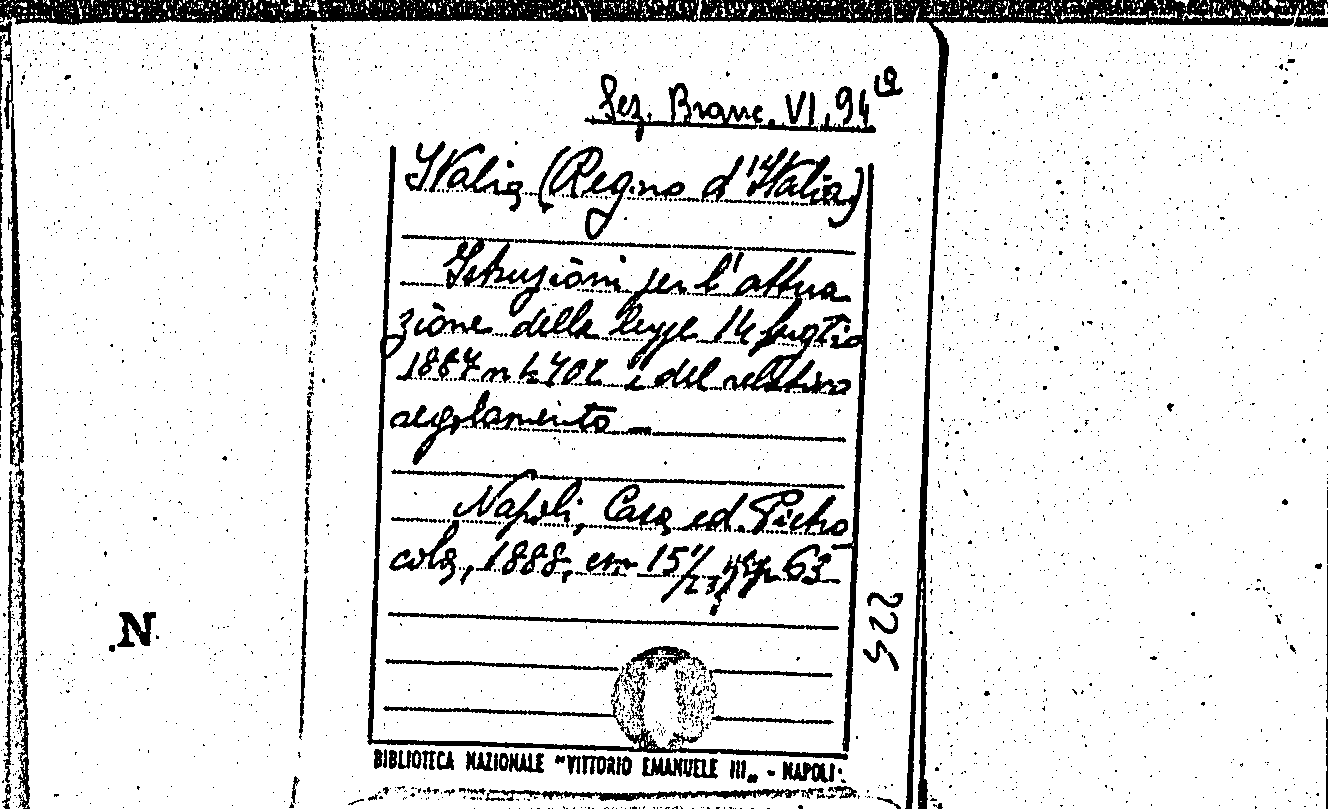 Sez. Branc. VI, 94 19
Italia (Regno d'Italia)
Istruzioni per l'attua
zione della legge 14 luglio
1887 n 4702 e del relativo
regolamento –
Napoli, Casa ed. Pietro
cola, 1888, cm 15 pp 63
225
.N
BIBLIOTECA NAZIONALE "VITTORIO EMANUELE III„ - NAPOLI